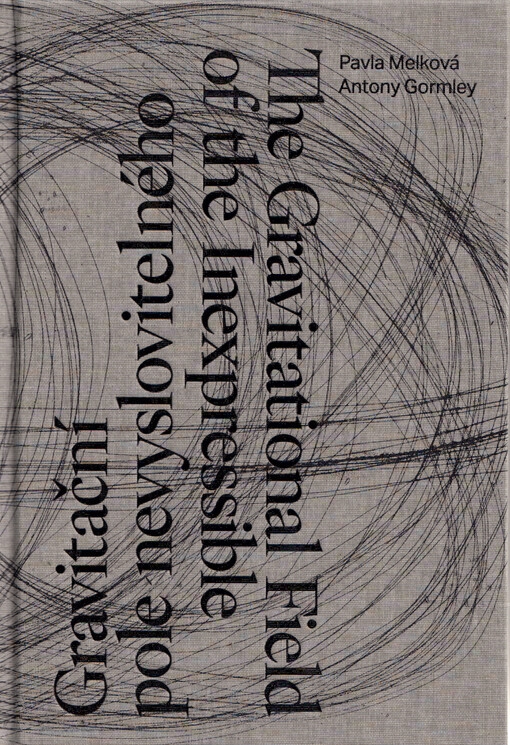 Pavla Melková
Antony Gormley
The Gravitational Field
of the Inexpressible
Gravitační
pole nevyslovitelného